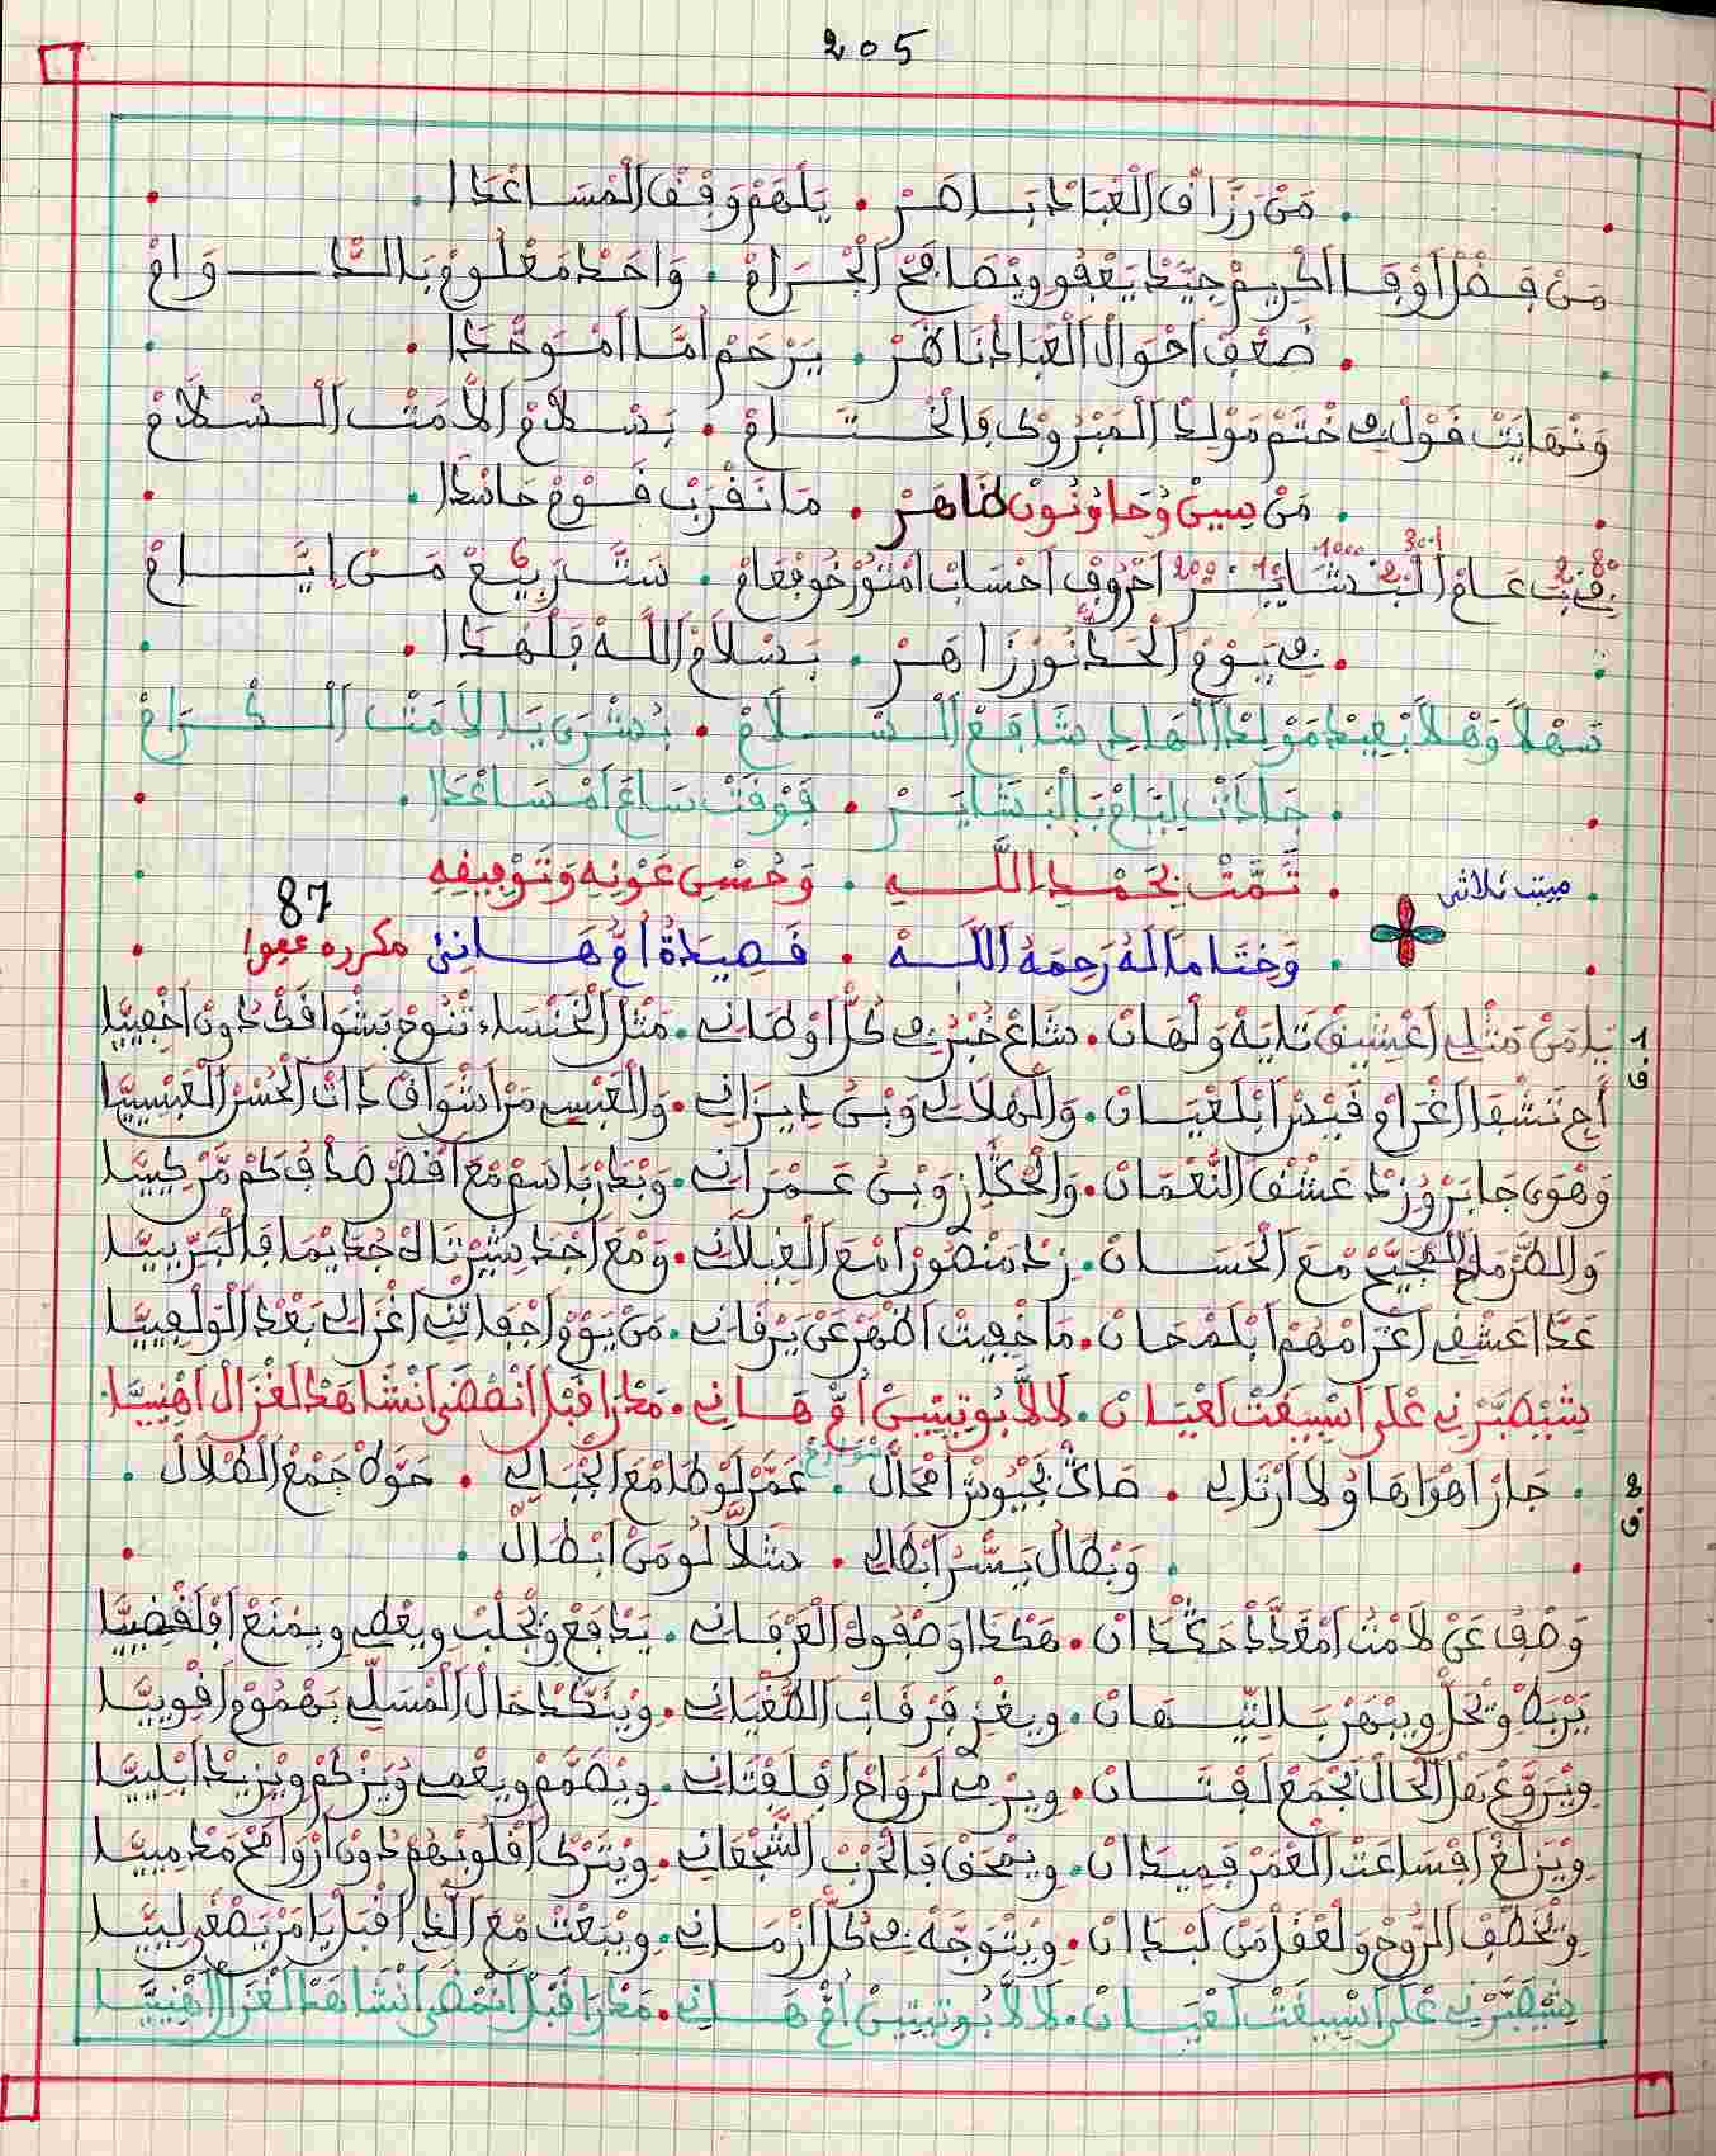 205
مَنْ رَزَّاق الْعْبَادْ بَاهَرْ . يَلْهَمْ وَقْفْ الْمْسَاعْدَا
مَنْ فَضْلْ أَوْفَا الكْرِيمْ جِيَّدْ يَعْفُو ويْصَافَحْ الْجْرَامْ . وَاحَدْ مَعْلُومْ بَالدّْوَامْ
ضَعْفْ احْوَالْ الْعْبَادْ نَاهَرْ . يَرْحَمْ أُمَّا امْوَحّْدَا
وَنْهَايَتْ قَوْلِي فِي خْتَمْ مَوْلِدْ الْمَبْرُوكْ فَالْخْتَامْ . بَسْلَامْ الْأُمَّتْ السْلَامْ
مَنْ سِينْ وُحَا وُنُونْ ظَاهَرْ . مَا نَقْرَبْ قَوْمْ حَاسْدَا
فِي بْتْ عَامْ البْشَايَرْ احْرُوفْ احْسَابْ امْنَوّْرْخُو فْعَامْ . سَتَّ رَبِيعْ مَنْ ايَّامْ
80 2 301 1000 2 10 200 6
فِي يَوْمْ الْحَدّْ نُورْ زَاهَرْ . بَسْلَامْ اللَّهْ فَلْهْدَا
سَهْلاً وَهْلاً بْعِيدْ مَوْلِدْ الْهَادِي شَافَعْ السْلَامْ . بُشْرَى يَا لاُمَّتْ الكْرَامْ
جَادَتْ لِيَّامْ بَالْبْشَايَرْ . فَوْقَتْ سَاعَ امْسَاعْدَا
تَمَّتْ بِحَمْدِ اللَّهِ . وَحُسْنِ عَوْنِهِ وَتَوْفِيقِهِ
مبيت ثلاثي
87
وَخْتَاما لَهُ رَحِمَهُ اللَّهْ . قَصِيدَةُ أُمْ هَانِئ مكرره عفوا
1
ق
يَا مَنْ مَثْلِي اعْشِيقْ تَايَهْ وَلْهَانْ . شَاعْ خْبْرِي فِي كُلّْ اوْطَانِي . مَثْلْ الْخَنْسَاء تْنُوحْ بَشْوَاقَكْ دُونْ اخْفِيَّا
أَجِي تَشْقَا الْغْرَامْ قَيْسْ ابْلَعْيَانْ . وَالْهْلَالِي وَبْنْ دِيزَانِي . وَالْعَبْسِي مَنْ اشْوَاقْ ذَاتْ الْحُسْنْ الْعَبْسِيَّا
وَهْوَى جَابَرْ وُزِدْ عَشْقْ النُّعْمَانْ . وَالْحْكَّازْ وَبْنْ عَمْرَانِي . وَبْدَرْ بَاسَمْ مْعَ اقْصَرْ صَدْفْ كَمْ مَنْ كِيَّا
وَالطُّرْمَاحْ الْمْجَيَّحْ مْعَ الْحَسَانْ . زِدْ مَنْصُورْ امْعَ الْغِيلَانِي . وَمْعَ اجَدْ بَشَّرْتَاكْ جْدَايْمَا فَالْبَرْبِيَّا
عَدَّا عَشْقِي اغْرَامْهُمْ ابْلَمْحَانْ . مَا خْفِيتْ اظْهَرْ عَنْ يَرْقَانِي . مَنْ يَوْمْ اجْفَاتْنِي اغْزَالِي بَعْدْ الْوَلْفِيَّا
شْيْصَبَّرْنِي عْلَى اسْبِيغْتْ لَعْيَانْ . لَالَّا بُوتِيتِينْ أُمْ هَانِي . مَدْرَا قْبَلْ انْمْضِي انْشَاهَدْ الْغْزَالْ اهْنِيَّا
2
ق
جَارْ اهْوَاهَا وُلَا ارْثَالِي . صَالْ بْجْيُوشْ امْحَالْ . عَمَّرْ لَوْطَا مْعَ الْجْبَالِي . حَوْلَهْ جَمْعْ الضْلَالْ
شَوَامَخْ
وَبْطَالْ بَسَّرْ ابْطَالِي . شَلَّا لُو مَنْ ابْطَالْ
وَصْفُ عَنْ لَامْتْ امْعَدَّدْ حَكْدَانْ . هَكْدَا وَصْفُوهْ الْعَرْفَانِي . يَدْفَعْ وَيْجْلَبْ ويعْطِي ويمْنَعْ افْلَقْضِيَّا
يَرْبَطْ وَيْحَلّْ ويبْهَرْ بَالتِّيهَانْ . ويغْزِ فَرْقَابْ الطّْغْيَانِي . ويْنَكّْدْ حَالْ الْمْسَلِّي بَهْمُومْ اقْوِيَّا
ويْرَوَّعْ بَعْلْ الْحَالْ بَجْمَعْ لَفْتَانْ . ويَرْمِي لَرْوَاحْ افْلَفْتَانِي . ويْصَمَّمْ ويعْمِي وُيَزْكَمْ ويْزِيدْ ابْلِيَّا
ويْزَلْعْ افْسَاعَتْ الْعْمَرْ فَمِيدَانْ . ويمْحَقْ فَالْحَرْبْ الشّْجْعَانِي . ويْتَرْكْ اقْلُوبْهُمْ دُونْ ارْوَاحْ مَدْمِيَّا
وِيْخْطَّفْ الرُّوحْ وَلْعْقَلْ مَنْ لَبْدَانْ . ويْتْوَجَّهْ فِي كُلّْ ازْمَانِي . ويْبْعَتْ مْعَ الَّذِي اقْبَلْ يَا مَنْ يَصْغَى لِيَّا
شْيْصَبَّرْنِي عْلَى اسْبِيغْتْ لَعْيَانْ . لَالَّا بُوتِيتِينْ أُمْ هَانِي . مَدْرَا قْبَلْ انْمْضِي انْشَاهَدْ الْغْزَالْ اهْنِيَّا